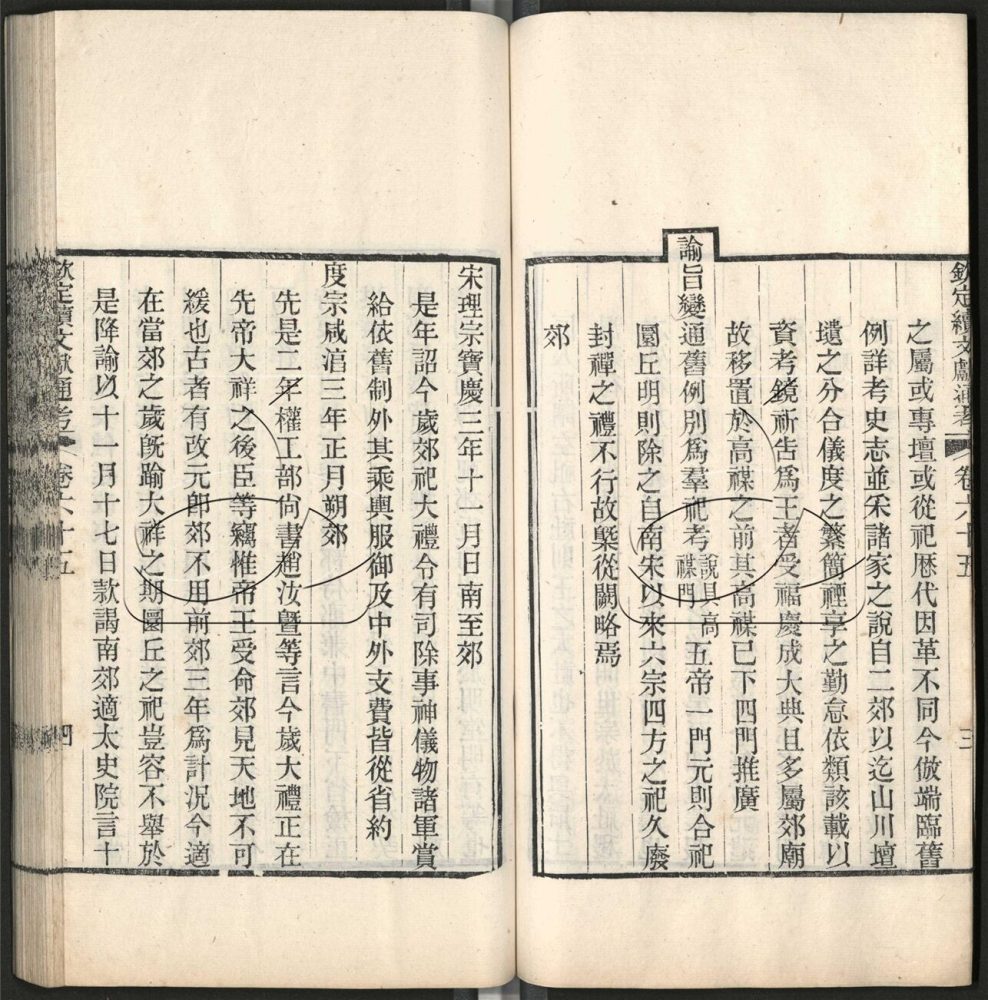 欽定續文獻通考 卷六十五 三
之屬或專壇或從祀歷代因革不同今倣端臨舊
例詳考史志並采諸家之說自二郊以迄山川壇
壝之分合儀度之繁簡禋享之勤怠依類該載以
資考鏡祈告爲王者受福慶成大典且多屬郊廟
故移置於高禖之前其高禖已下四門推廣
諭旨變通舊例別爲羣祀考說具高禖門五帝一門元則合祀
圜丘明則除之自南宋以來六宗四方之祀久廢
封禪之禮不行故槩從闕略焉
郊
宋理宗寶慶三年十一月日南至郊
是年詔今歲郊祀大禮令有司除事神儀物諸軍賞
給依舊制外其乘輿服御及中外支費皆從省約
度宗咸淳三年正月朔郊
先是二年權工部尙書趙汝曁等言今歲大禮正在
先帝大祥之後臣等竊惟帝王受命郊見天地不可
緩也古者有改元卽郊不用前郊三年爲計況今適
在當郊之歲旣踰大祥之期圜丘之祀豈容不舉於
是降諭以十一月十七日款謁南郊適太史院言十
欽定續文獻通考 卷六十五 四